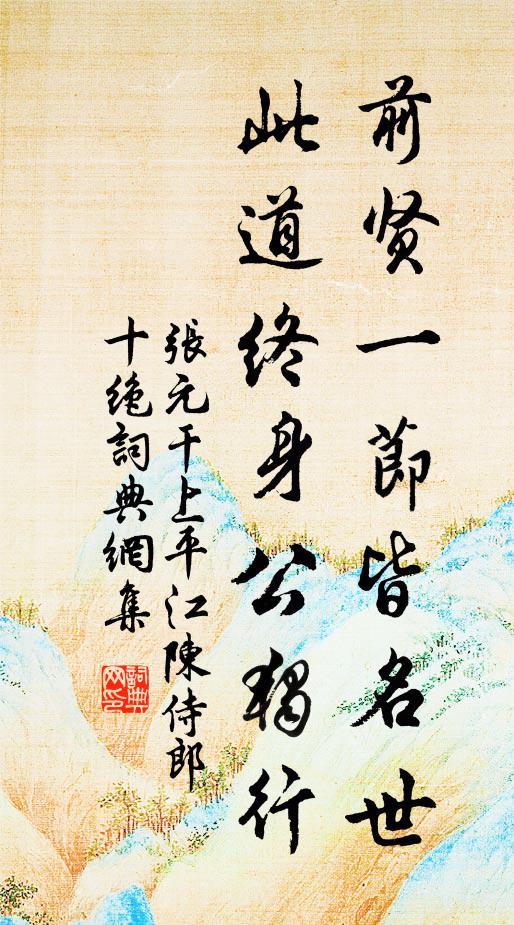 前贤一節皆名世
此道终身公独行
張元干上平江陳侍郎
十绝詞典網集
詞典網印